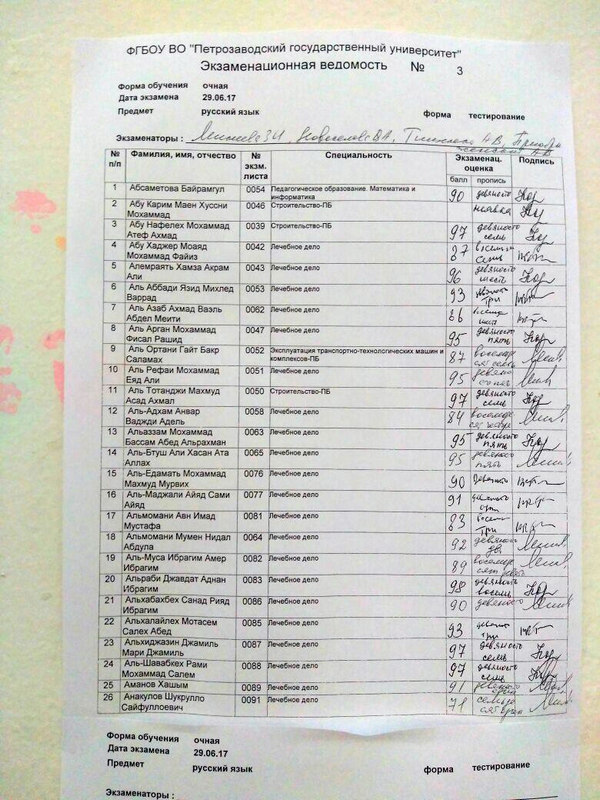 ФГБОУ ВО "Петрозаводский государственный университет"
Экзаменационная ведомость № 3
Форма обучения очная
Дата экзамена 29.06.17
Предмет русский язык форма тестирование
Экзаменаторы :
№ п/п Фамилия, имя, отчество № экзм. листа Специальность Экзаменац. оценка Подпись
балл пропись
1 Абсаметова Байрамгул 0054 Педагогическое образование. Математика и информатика 90 девяносто
2 Абу Карим Маен Хуссни Мохаммад 0046 Строительство-ПБ неявка
3 Абу Нафелех Мохаммад Атеф Ахмад 0039 Строительство-ПБ 97 девяносто семь
4 Абу Хаджер Моаяд Мохаммад Файиз 0042 Лечебное дело 87
5 Алемраять Хамза Акрам Али 0043 Лечебное дело 96 девяносто шесть
6 Аль Аббади Язид Михлед Варрад 0053 Лечебное дело 93 девяносто три
7 Аль Азаб Ахмад Ваэль Абдел Меити 0062 Лечебное дело 86
8 Аль Арган Мохаммад Фисал Рашид 0047 Лечебное дело 95 девяносто пять
9 Аль Ортани Гайт Бакр Саламах 0052 Эксплуатация транспортно-технологических машин и комплексов-ПБ 87
10 Аль Рефаи Мохаммад Еяд Али 0051 Лечебное дело 95
11 Аль Тотанджи Махмуд Асад Ахмал 0050 Строительство-ПБ 97 девяносто семь
12 Аль-Адхам Анвар Ваджди Адель 0058 Лечебное дело 84
13 Альаззам Мохаммад Бассам Абед Альрахман 0063 Лечебное дело 95 девяносто пять
14 Аль-Бтуш Али Хасан Ата Аллах 0065 Лечебное дело 95 девяносто пять
15 Аль-Едамать Мохаммад Махмуд Мурвих 0076 Лечебное дело 90 девяносто
16 Аль-Маджали Айяд Сами Айяд 0077 Лечебное дело 91
17 Альмомани Авн Имад Мустафа 0081 Лечебное дело 83
18 Альмомани Мумен Нидал Абдула 0064 Лечебное дело 92
19 Аль-Муса Ибрагим Амер Ибрагим 0082 Лечебное дело 89
20 Альраби Джавдат Аднан Ибрагим 0083 Лечебное дело 98 девяносто восемь
21 Альхабахбех Санад Рияд Ибрагим 0086 Лечебное дело 90 девяносто
22 Альхалайлех Мотасем Салех Абед 0085 Лечебное дело 93
23 Альхиджазин Джамиль Мари Джамиль 0087 Лечебное дело 97 девяносто семь
24 Аль-Шавабкех Рами Мохаммад Салем 0088 Лечебное дело 97 девяносто семь
25 Аманов Хашым 0089 Лечебное дело 91
26 Анакулов Шукрулло Сайфуллоевич 0091 Лечебное дело 71
Форма обучения очная
Дата экзамена 29.06.17
Предмет русский язык форма тестирование
Экзаменаторы :